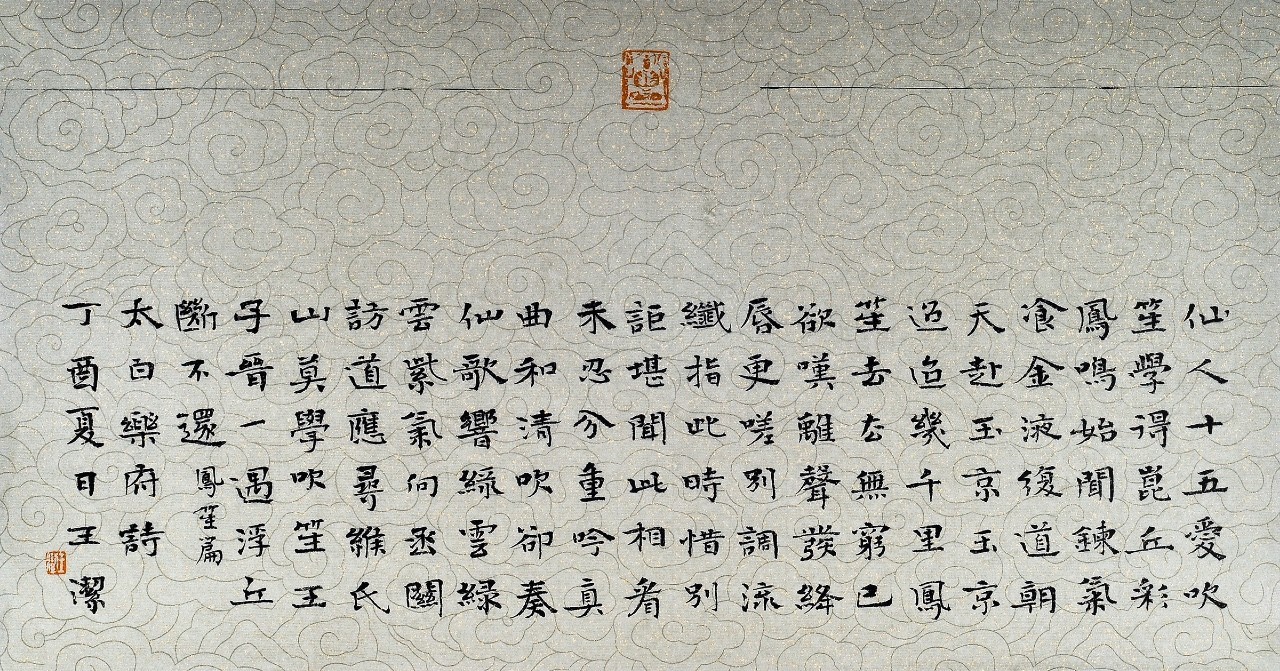 仙人十五愛吹
笙學得崑丘彩
鳳鳴始聞鍊氣
飡金液復道朝
天赴玉京玉京
迢迢幾千里鳳
笙去去無窮已
欲嘆離聲發絳
唇更嗟別調流
纖指此時惜別
詎堪聞此相看
未忍分重吟真
曲和清吹卻奏
仙歌響綠雲綠
雲紫氣向函關
訪道應尋緱氏
山莫學吹笙王
子晉一遇浮丘
斷不還 鳳笙篇
太白樂府詩
丁酉夏日王潔